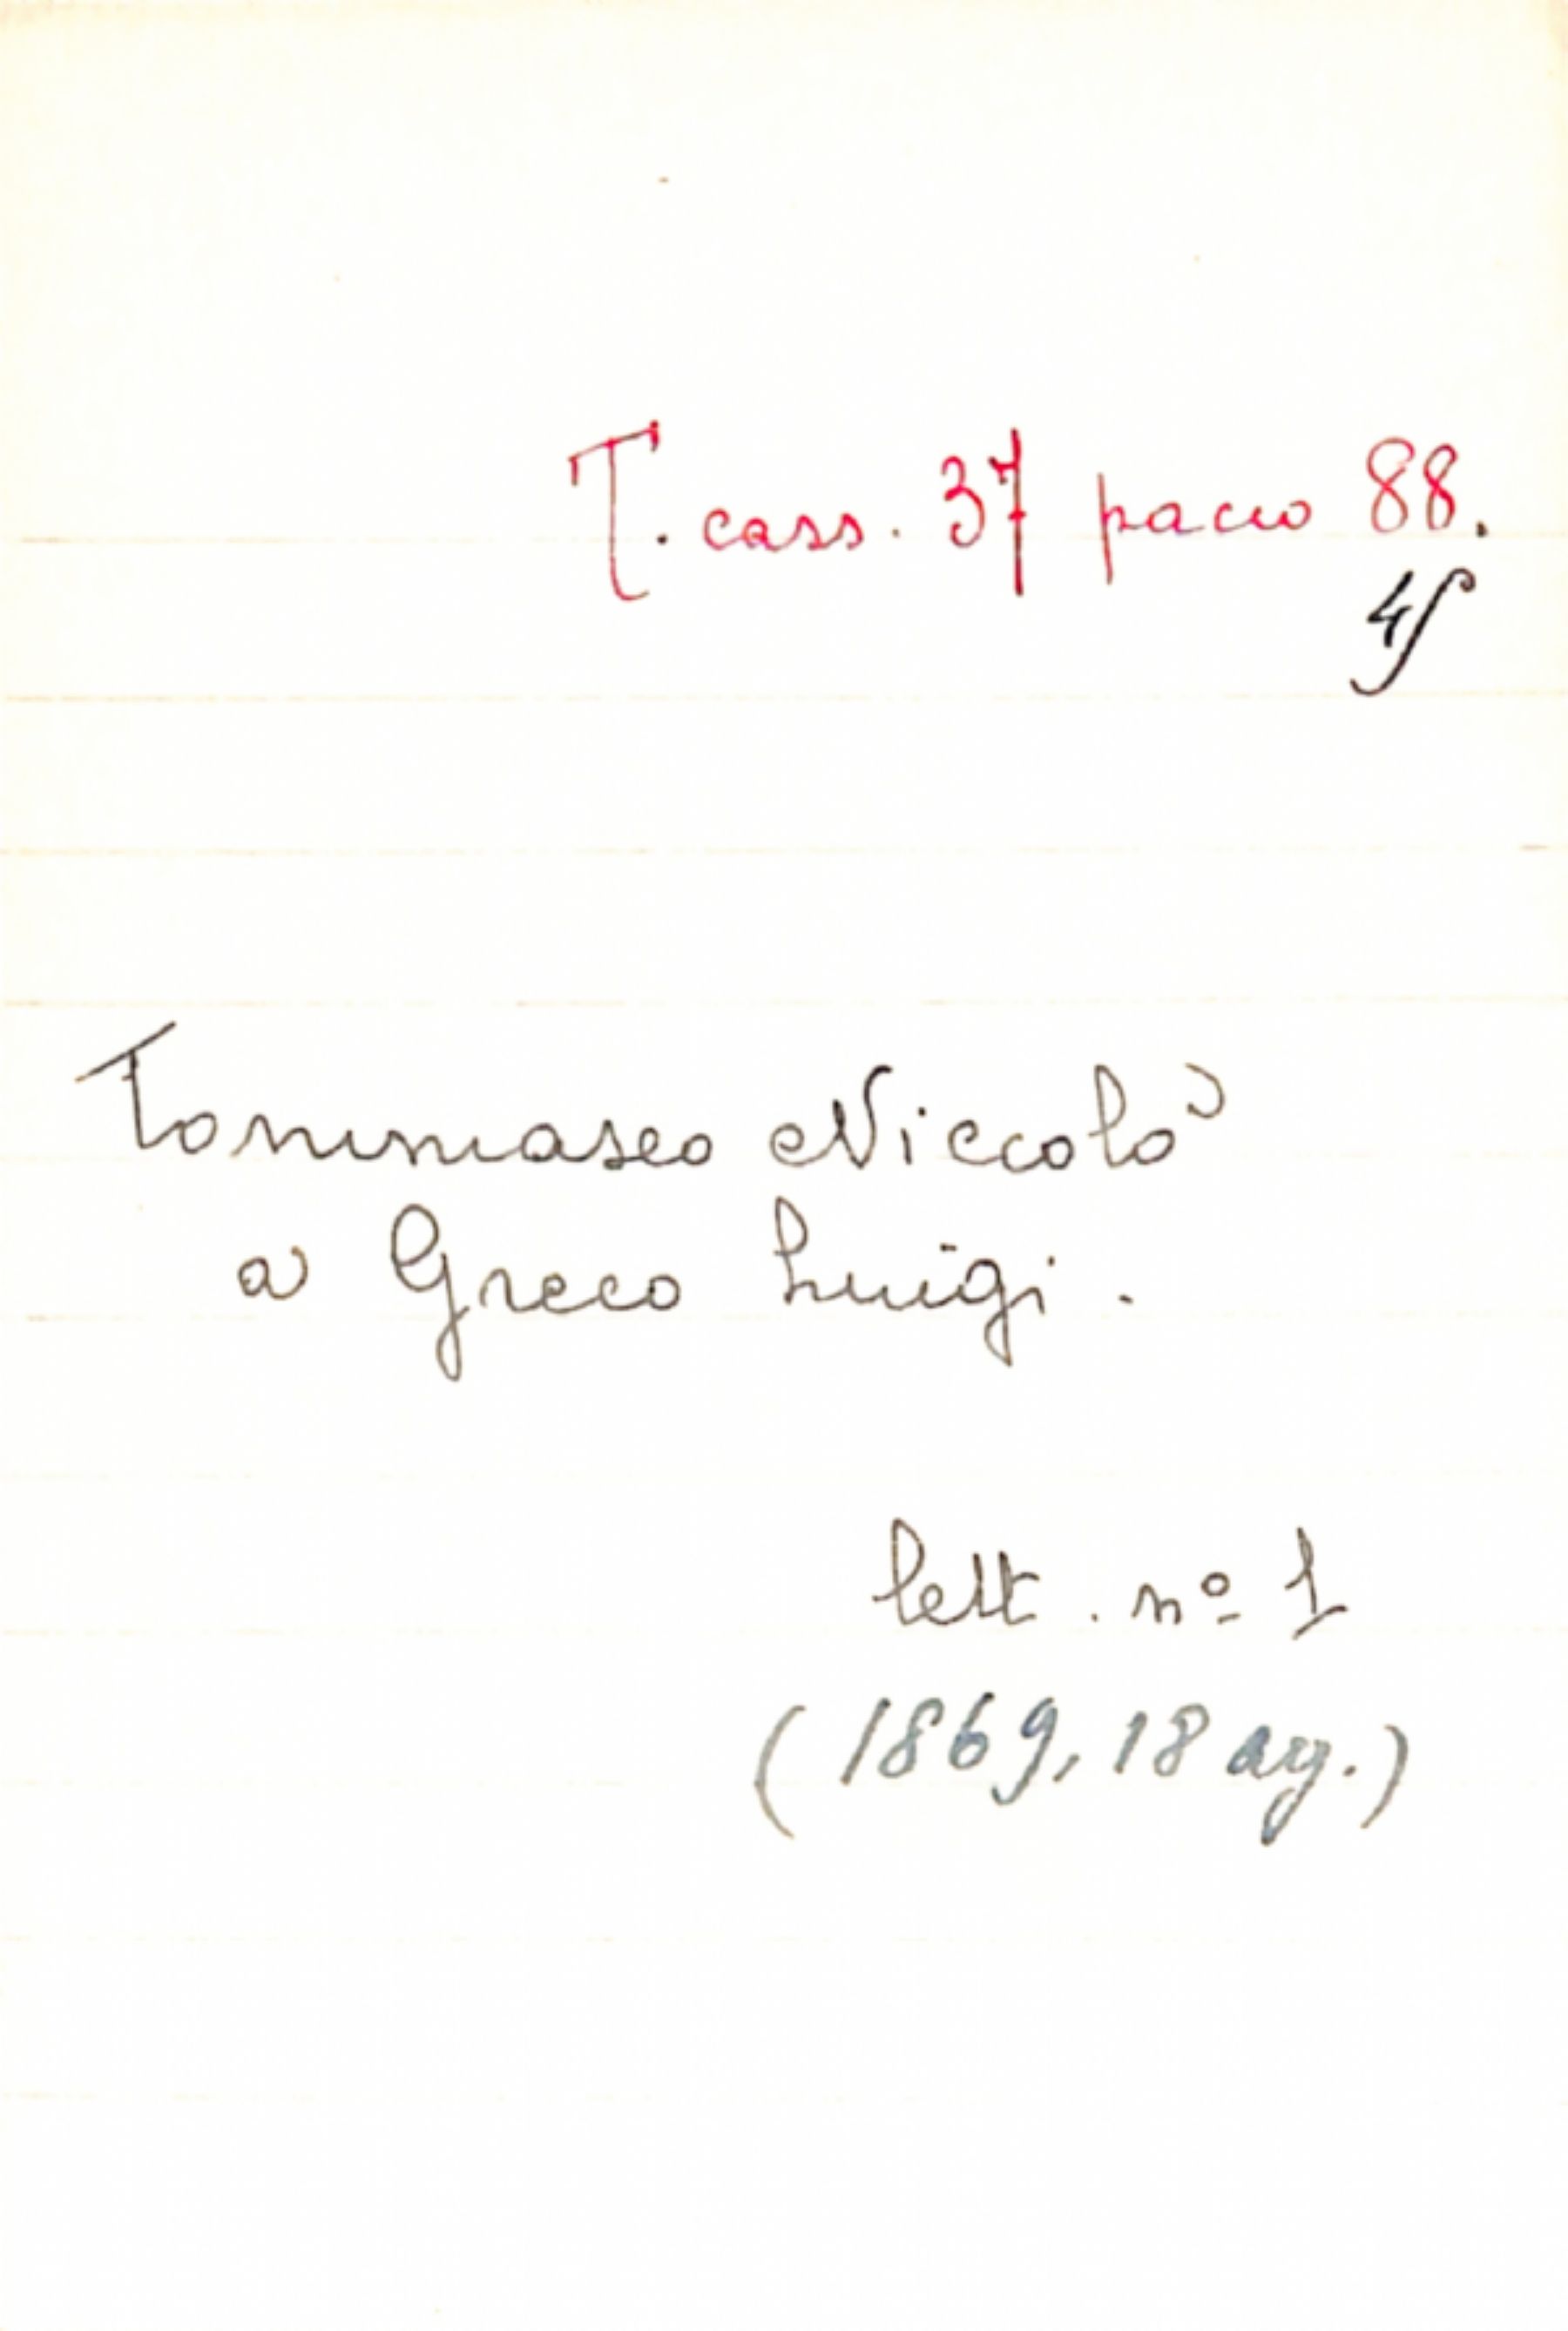 T. cass. 37 pacco 88.
Tommaseo Niccolò
a Greco Luigi.
lett. nº 1
(1869, 18 ag.)